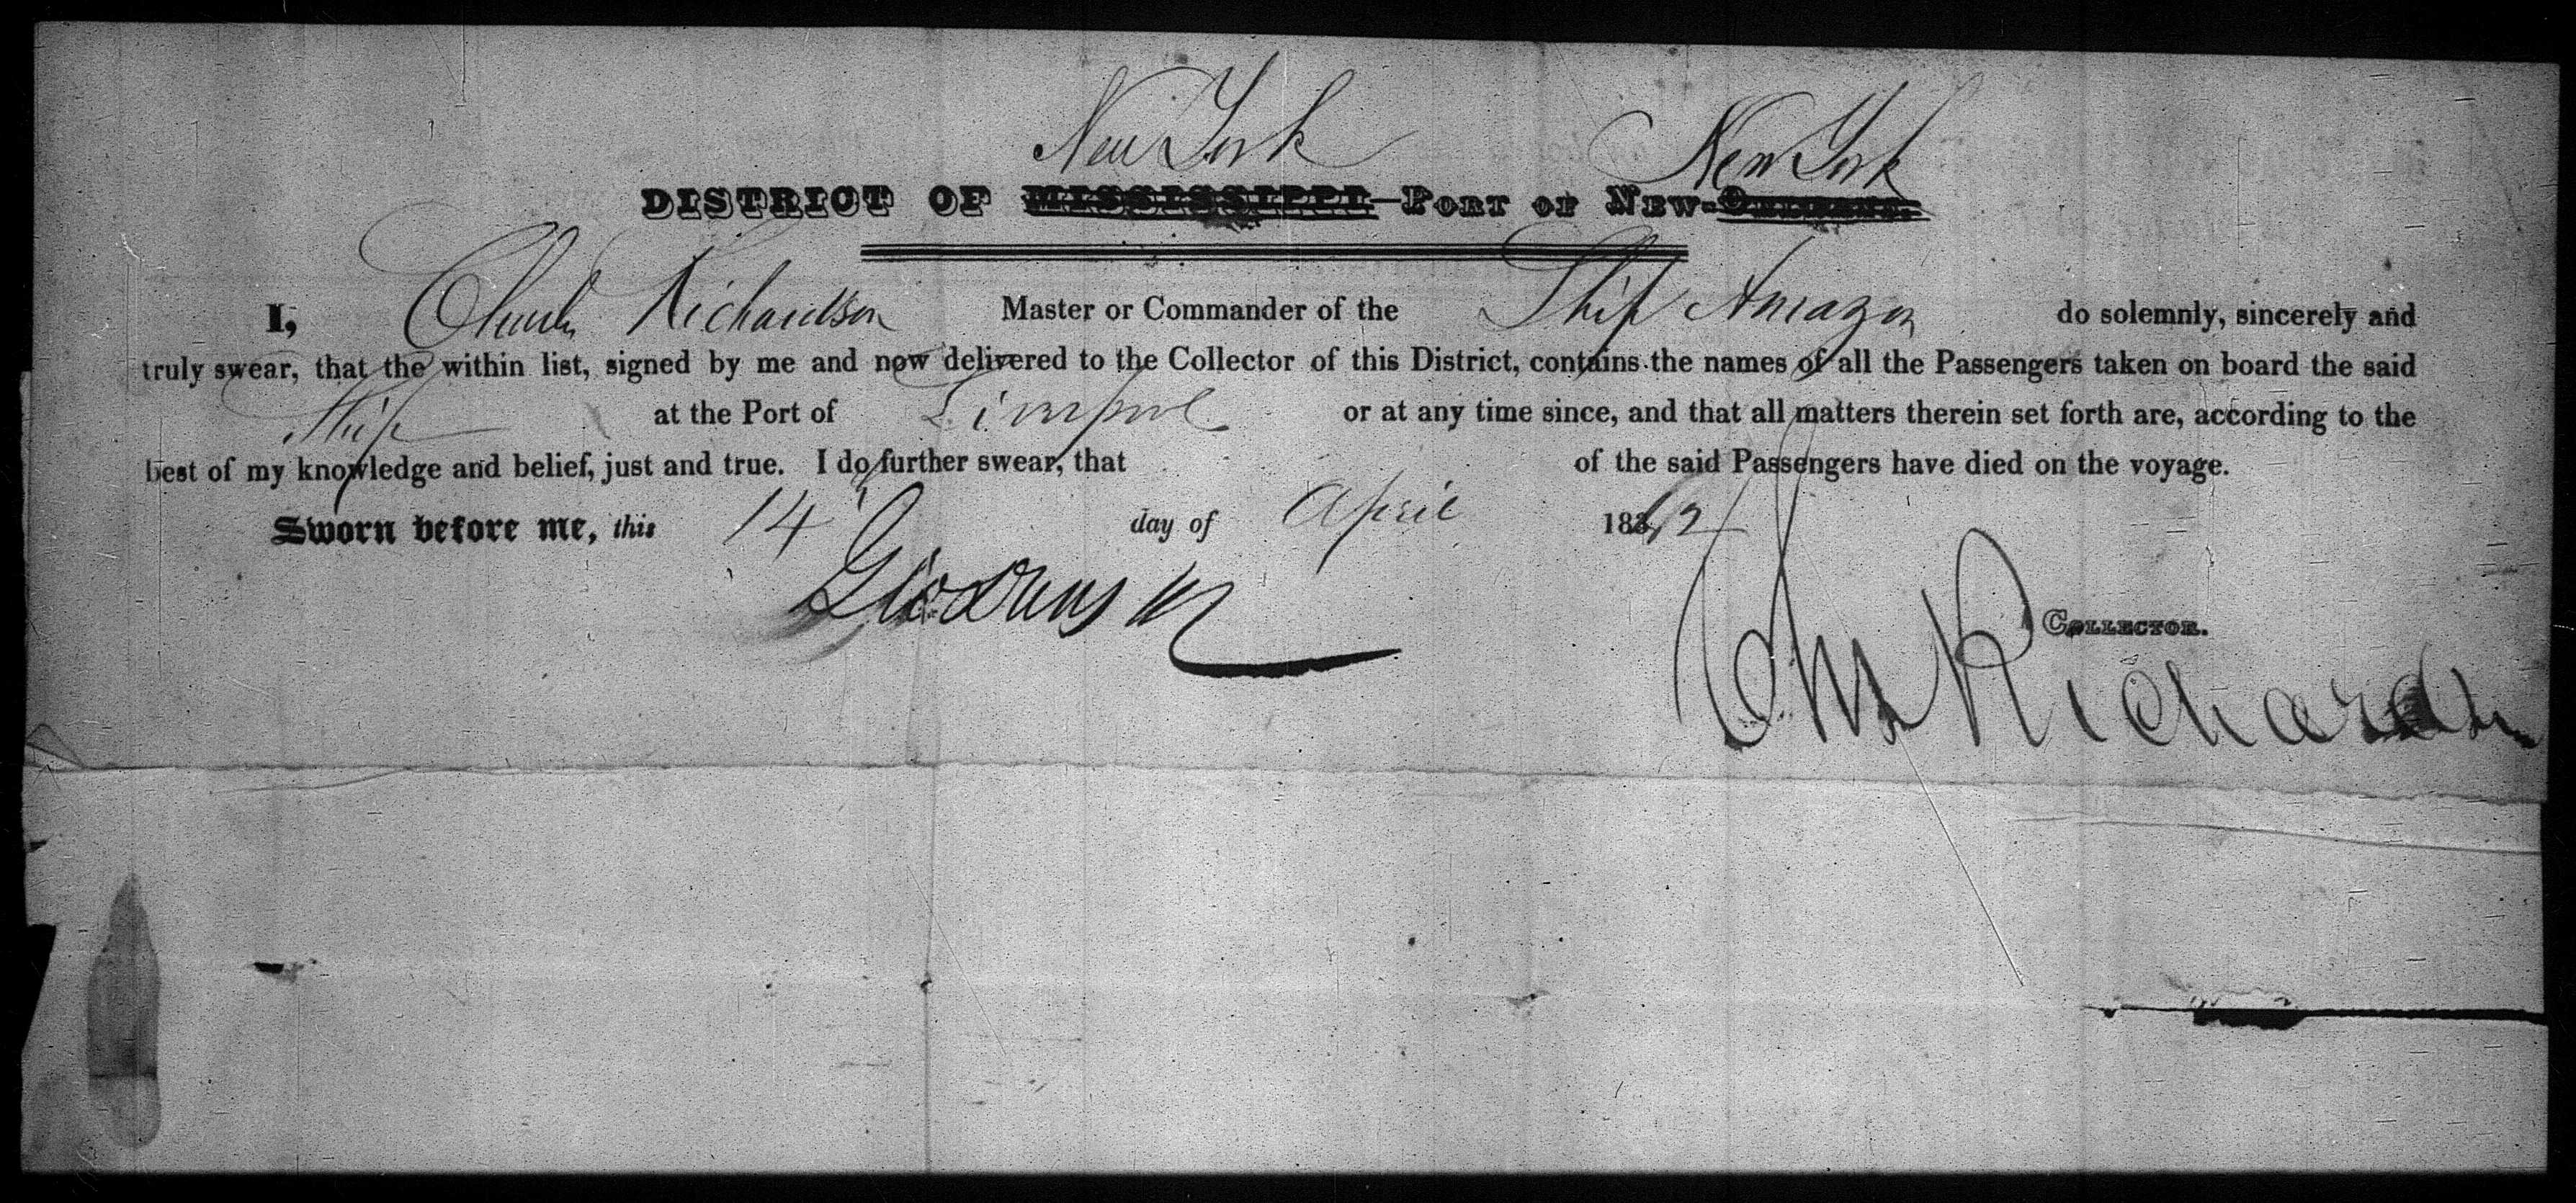 New York New York
DISTRICT OF MISSISSIPPI PORT OF NEW-ORLEANS.
I, Charles Richardson Master or Commander of the Ship Amazon do solemnly, sincerely and
truly swear, that the within list, signed by me and now delivered to the Collector of this District, contains the names of all the Passengers taken on board the said
Ship at the Port of Liverpool or at any time since, and that all matters therein set forth are, according to the
best of my knowledge and belief, just and true. I do further swear, that of the said Passengers have died on the voyage.
Sworn before me, this 14 day of April 18
COLLECTOR.
Richardson